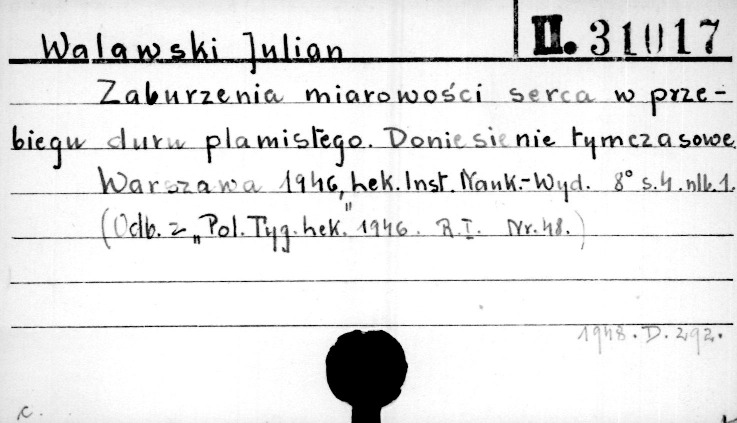 II. 31017
Walawski Julian
Zaburzenia miarowości serca w prze-
biegu duru plamistego. Doniesienie tymczasowe.
Warszawa 1946, Lek. Inst. Nauk.-Wyd. 8° s. 4. nlb. 1.
(Odb. z „Pol. Tyg. Lek." 1946. R. I. Nr. 48.)
1948. D. 292.
c.